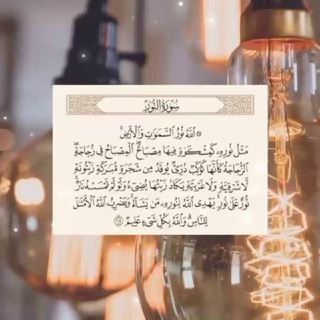 سُورَةُ النُّورِ
۞ اللَّهُ نُورُ السَّمَٰوَٰتِ وَالْأَرْضِ
مَثَلُ نُورِهِ كَمِشْكَوٰةٍ فِيهَا مِصْبَاحٌ الْمِصْبَاحُ فِي زُجَاجَةٍ
الزُّجَاجَةُ كَأَنَّهَا كَوْكَبٌ دُرِّيٌّ يُوقَدُ مِن شَجَرَةٍ مُّبَٰرَكَةٍ زَيْتُونَةٍ
لَّا شَرْقِيَّةٍ وَلَا غَرْبِيَّةٍ يَكَادُ زَيْتُهَا يُضِيءُ وَلَوْ لَمْ تَمْسَسْهُ نَارٌ
نُّورٌ عَلَىٰ نُورٍ يَهْدِي اللَّهُ لِنُورِهِ مَن يَشَاءُ وَيَضْرِبُ اللَّهُ الْأَمْثَٰلَ
لِلنَّاسِ وَاللَّهُ بِكُلِّ شَيْءٍ عَلِيمٌ ٣٥